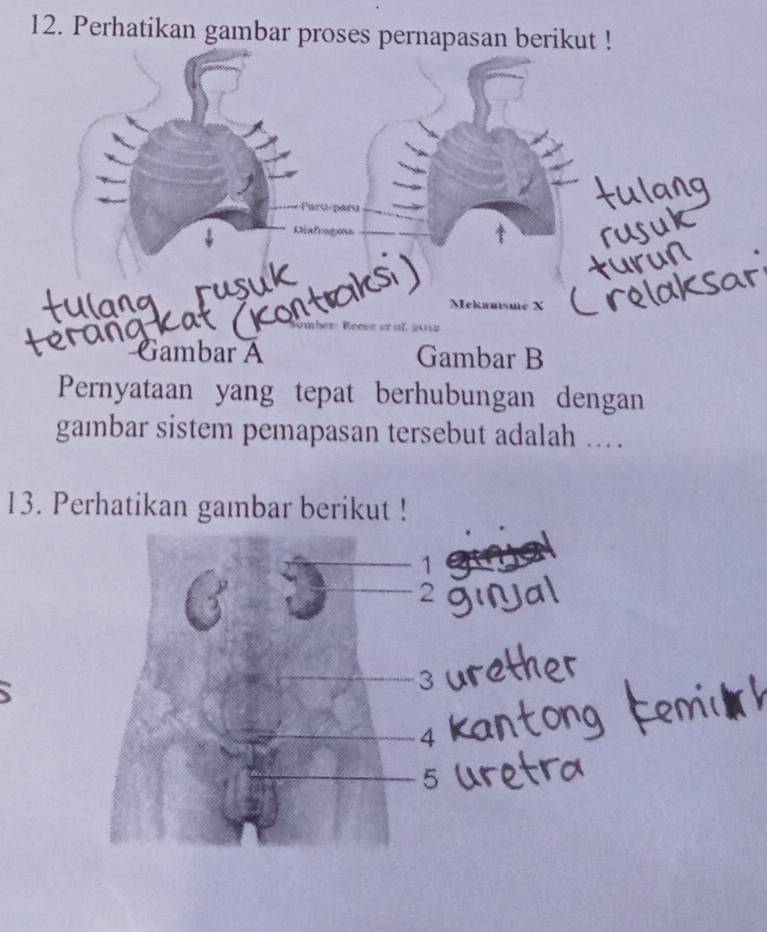 12. Perhatikan gambar proses pernapasan berikut !
Paru-paru
Diafragma
tulang
rusuk
turun
(relaksasi
tulang rusuk
terangkat (kontraksi)
Mekanisme X
Sumber: Reece et al. 2012
Gambar A
Gambar B
Pernyataan yang tepat berhubungan dengan
gambar sistem pernapasan tersebut adalah ....
13. Perhatikan gambar berikut !
1
2 ginjal
3 urether
4 kantong kemih
5 uretra